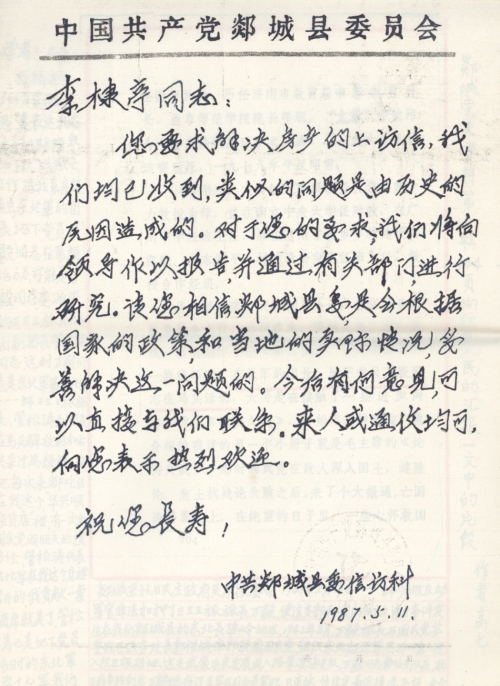 中国共产党郯城县委员会
李棣亭同志：
您要求解决房产的上访信，我
们均已收到，类似的问题是由历史的
原因造成的。对于您的要求，我们将向
领导作以报告，并通过有关部门进行
研究。请您相信郯城县委员会根据
国家的政策和当地的实际情况，妥
善解决这一问题的。今后有何意见，可
以直接与我们联系，来人或通信均可，
向您表示热烈欢迎。
祝您长寿！
中共郯城县委信访科
1987.5.11.